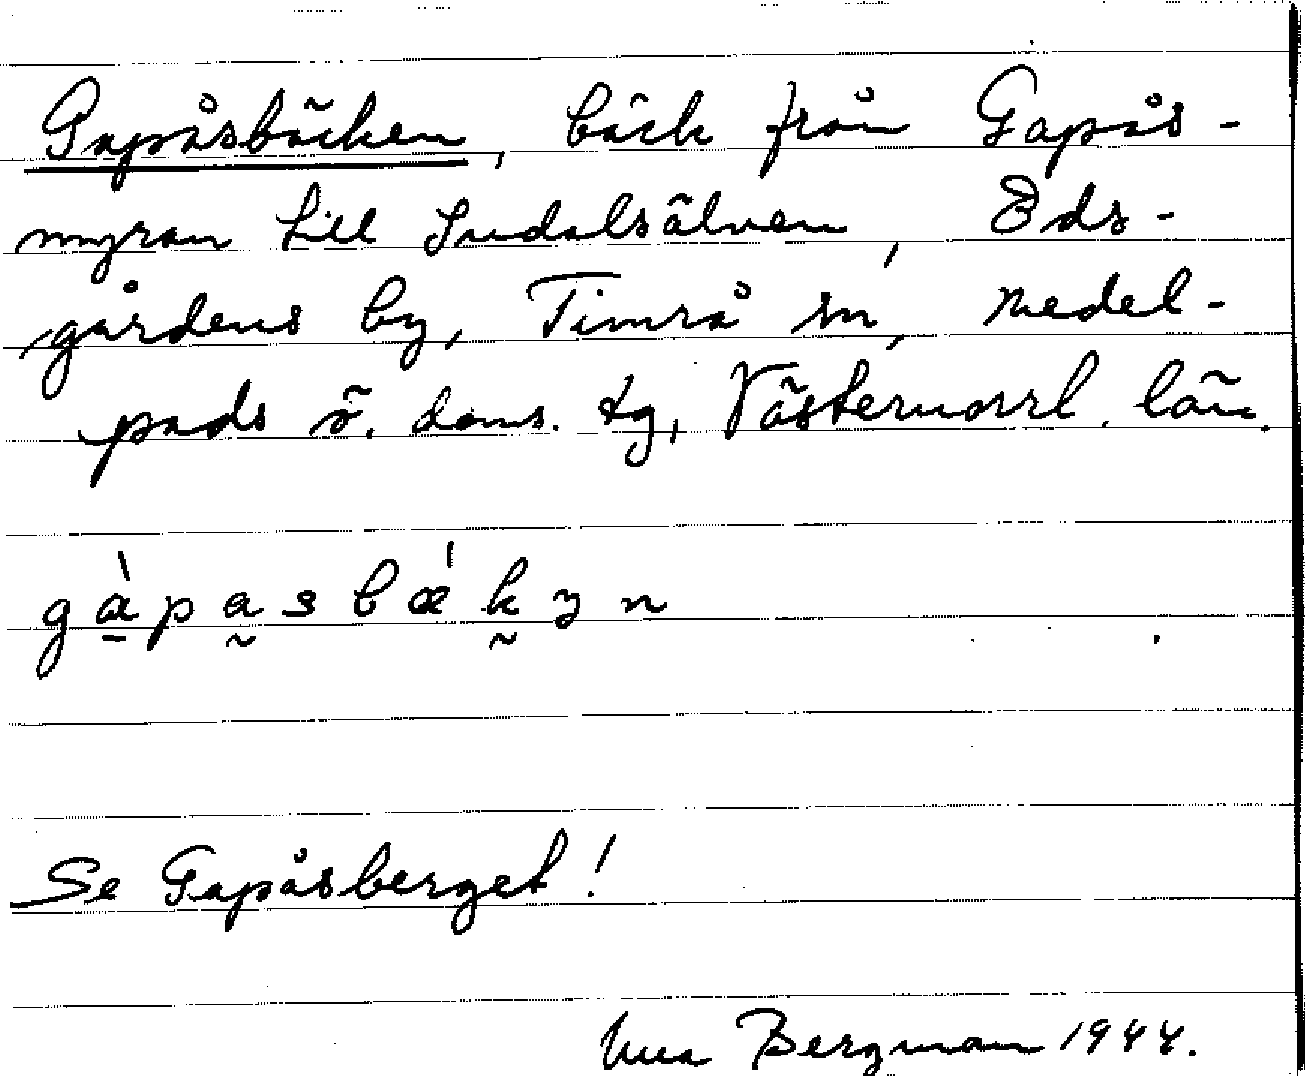 Gapåsbäcken, bäck från Gapås-
myran till Indalsälven, Öds-
gårdens by, Timrå sn, Medel-
pads ö. doms. tg, Västernorrl. län.
gàpasbækyn
Se Gapåsberget!
Bergman 1944.